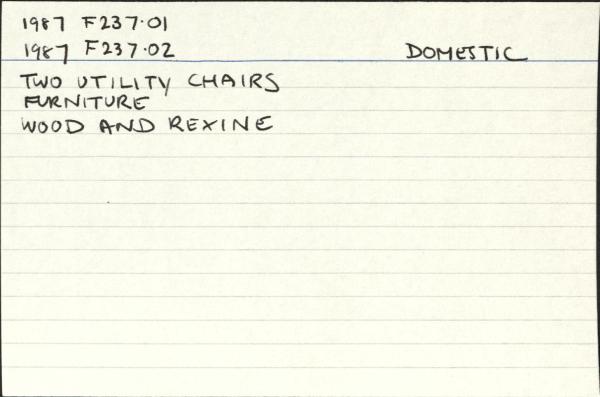 1987 F237.01
1987 F237.02 DOMESTIC
TWO UTILITY CHAIRS
FURNITURE
WOOD AND REXINE